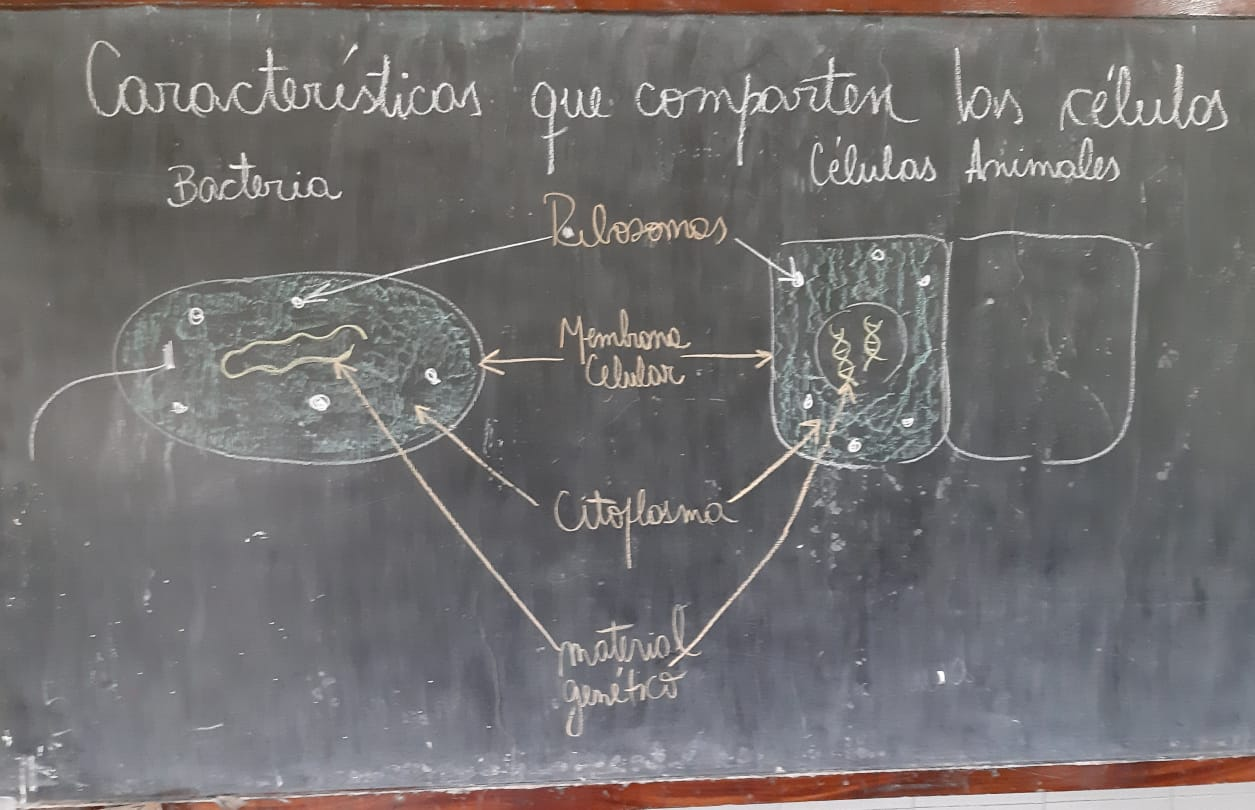 Características que comparten las células
Bacteria
Células Animales
Ribosomas
Membrana
Celular
Citoplasma
material
genético